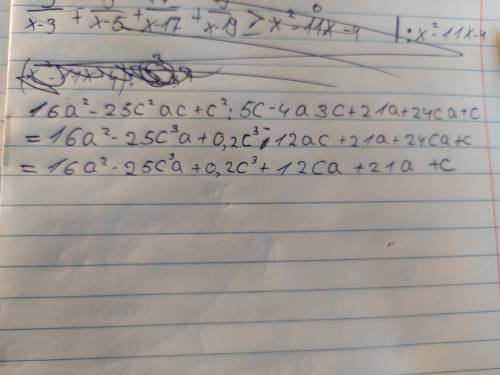 x-3 + x-5 + x-17 + x-19 ≥ x² - 11x - 4 | : x² - 11x - 4
16a² - 25c² ac + c² : 5c - 4a 3c + 21a + 24ca + c
= 16a² - 25c³a + 0,2c³ - 12ac + 21a + 24ca + c
= 16a² - 25c³a + 0,2c³ + 12ca + 21a + c